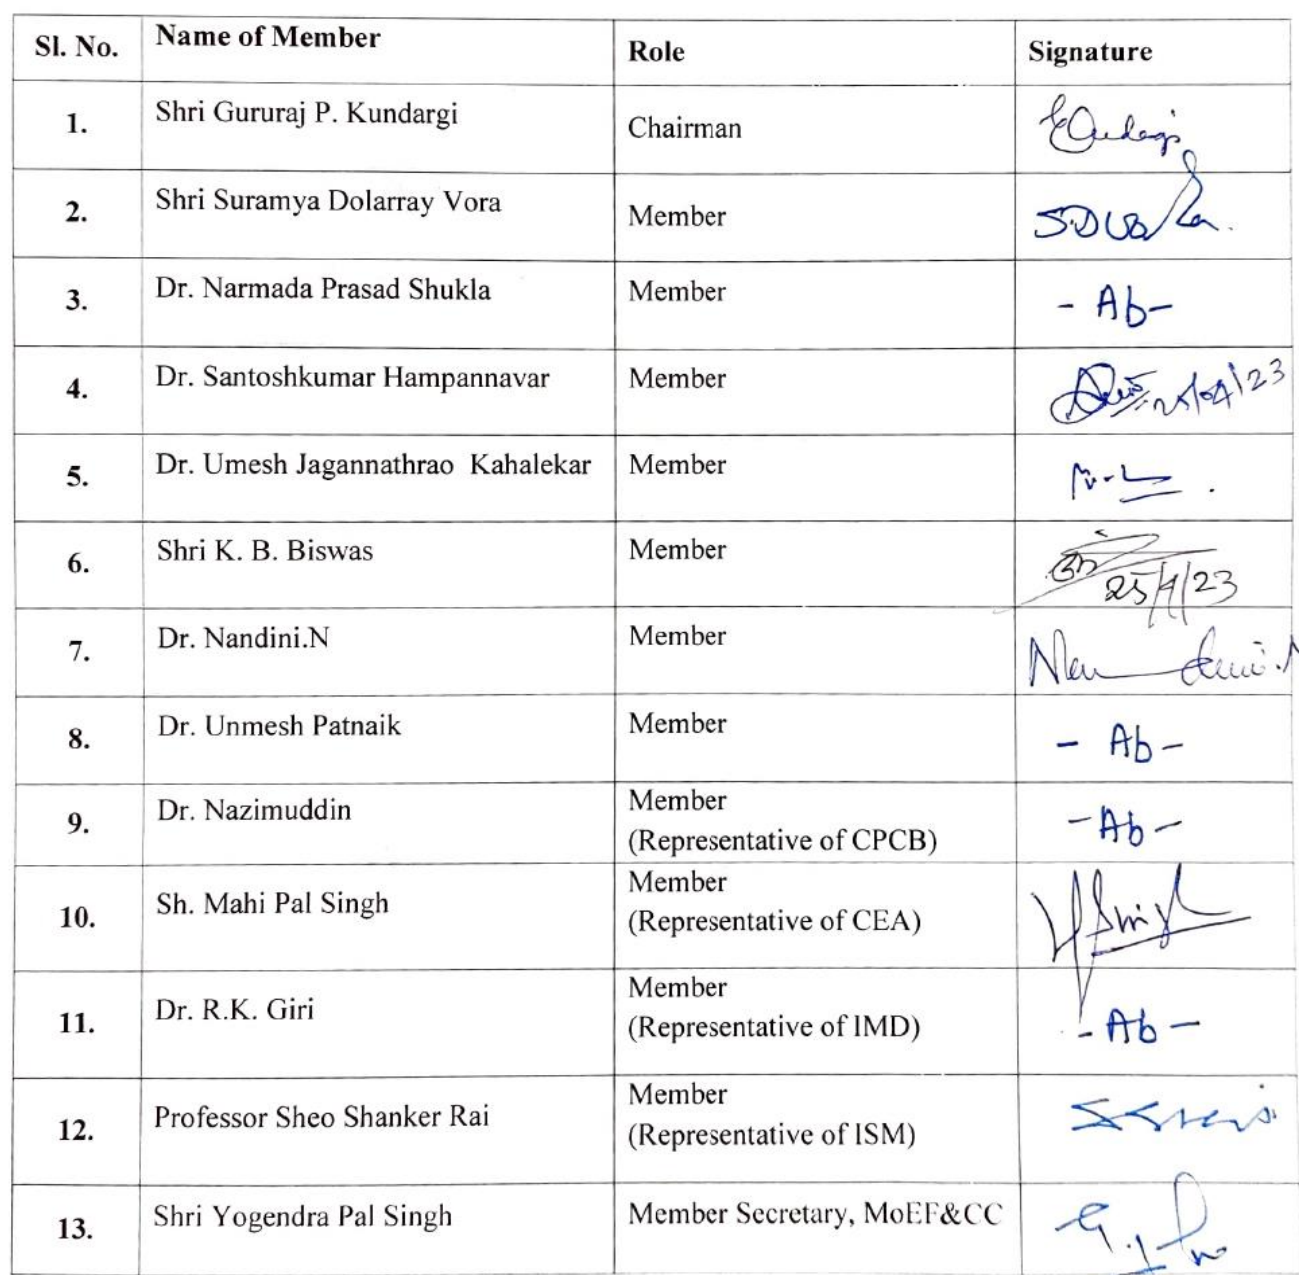 Sl. No. Name of Member Role Signature
1. Shri Gururaj P. Kundargi Chairman
2. Shri Suramya Dolarray Vora Member
3. Dr. Narmada Prasad Shukla Member - Ab -
4. Dr. Santoshkumar Hampannavar Member 25/04/23
5. Dr. Umesh Jagannathrao Kahalekar Member
6. Shri K. B. Biswas Member 25/4/23
7. Dr. Nandini.N Member
8. Dr. Unmesh Patnaik Member - Ab -
9. Dr. Nazimuddin Member
(Representative of CPCB) - Ab -
10. Sh. Mahi Pal Singh Member
(Representative of CEA)
11. Dr. R.K. Giri Member
(Representative of IMD) - Ab -
12. Professor Sheo Shanker Rai Member
(Representative of ISM)
13. Shri Yogendra Pal Singh Member Secretary, MoEF&CC